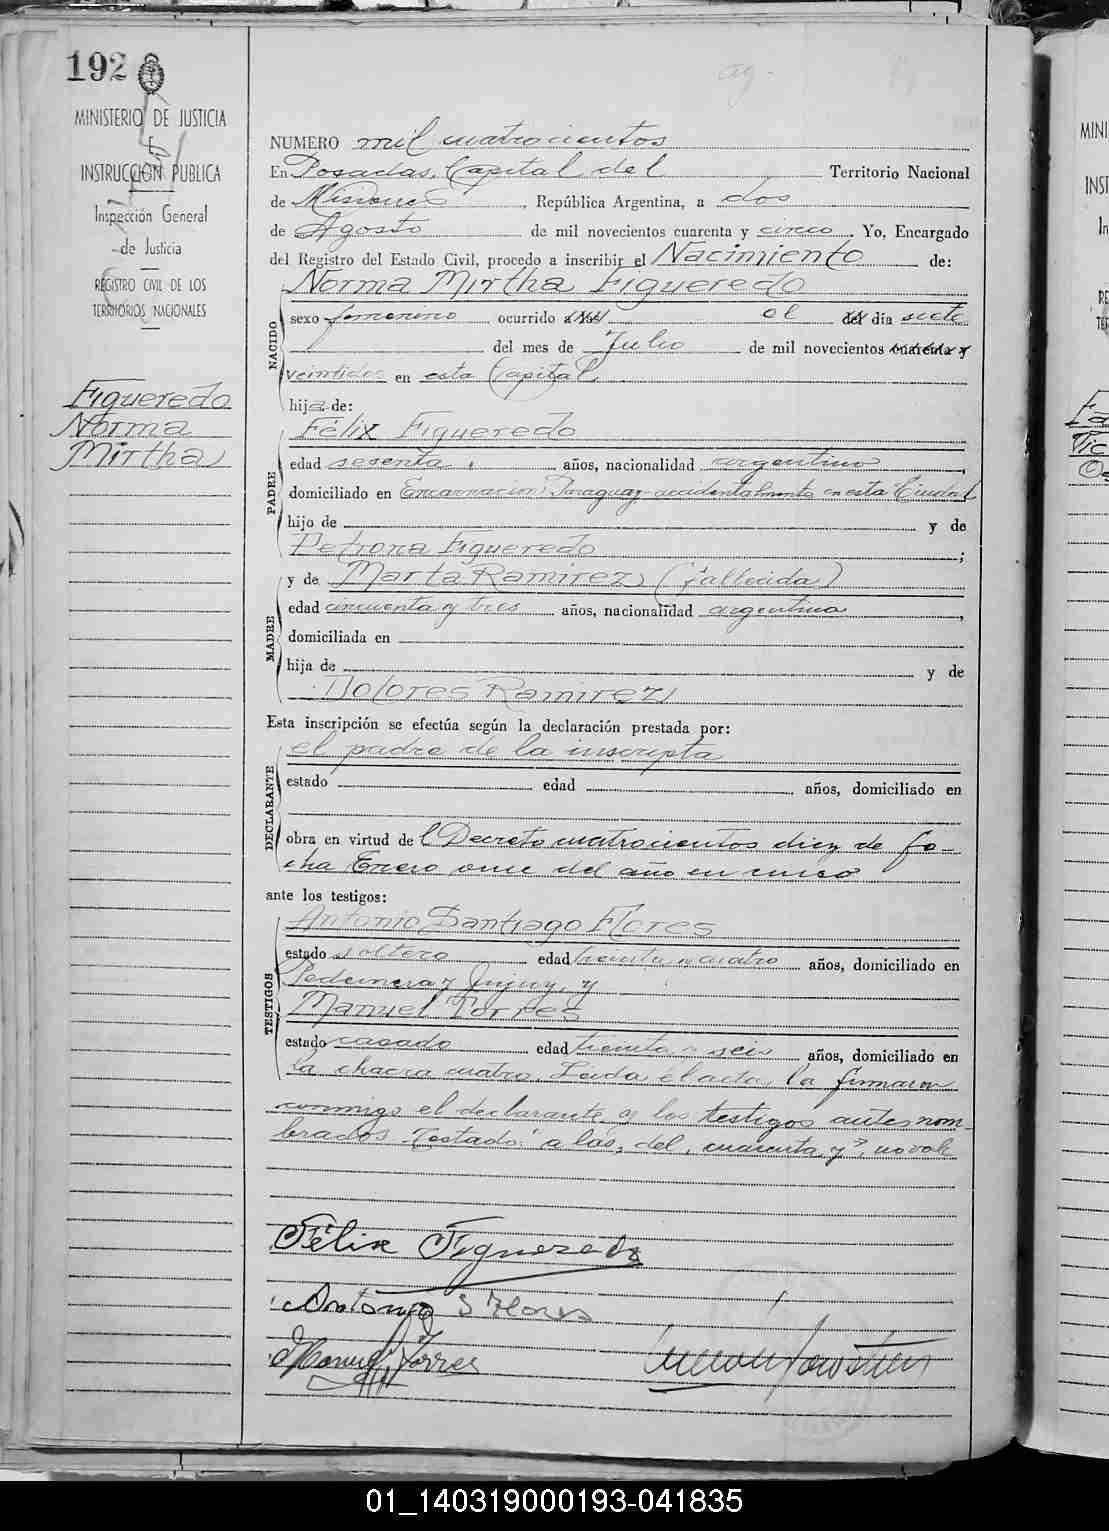 192
MINISTERIO DE JUSTICIA
E
INSTRUCCIÓN PUBLICA
Inspección General
de Justicia
REGISTRO CIVIL DE LOS
TERRITORIOS NACIONALES
Figueredo
Norma
Mirtha
NUMERO mil cuatrocientos
En Posadas, Capital del Territorio Nacional
de Misiones, República Argentina, a dos
de Agosto de mil novecientos cuarenta y cinco. Yo, Encargado
del Registro del Estado Civil, procedo a inscribir el Nacimiento de:
NACIDO
Norma Mirtha Figueredo
sexo femenino ocurrido a las el del día siete
del mes de Julio de mil novecientos cuarenta y
veintidos en esta Capital
hija de:
PADRE
Félix Figueredo
edad sesenta años, nacionalidad argentino,
domiciliado en Encarnación Paraguay accidentalmente en esta Ciudad
hijo de y de
Petrona Figueredo;
MADRE
y de Marta Ramirez (fallecida)
edad cincuenta y tres años, nacionalidad argentina,
domiciliada en
hija de y de
Dolores Ramirez
Esta inscripción se efectúa según la declaración prestada por:
DECLARANTE
el padre de la inscripta
estado edad años, domiciliado en
obra en virtud del Decreto cuatrocientos diez de fe-
cha Enero once del año en curso
ante los testigos:
TESTIGOS
Antonio Santiago Flores
estado soltero edad treinta y cuatro años, domiciliado en
Pedernera y Jujuy, y
Manuel Torres
estado casado edad treinta y seis años, domiciliado en
la chacra cuatro. Leida el acta, la firmaron
conmigo el declarante y los testigos antes nom-
brados. Testado: "a las, del, cuarenta y", no vale
Félix Figueredo
Antonio S Flores
Manuel Torres
MINI
INST
In
RE
TE
01_140319000193-041835